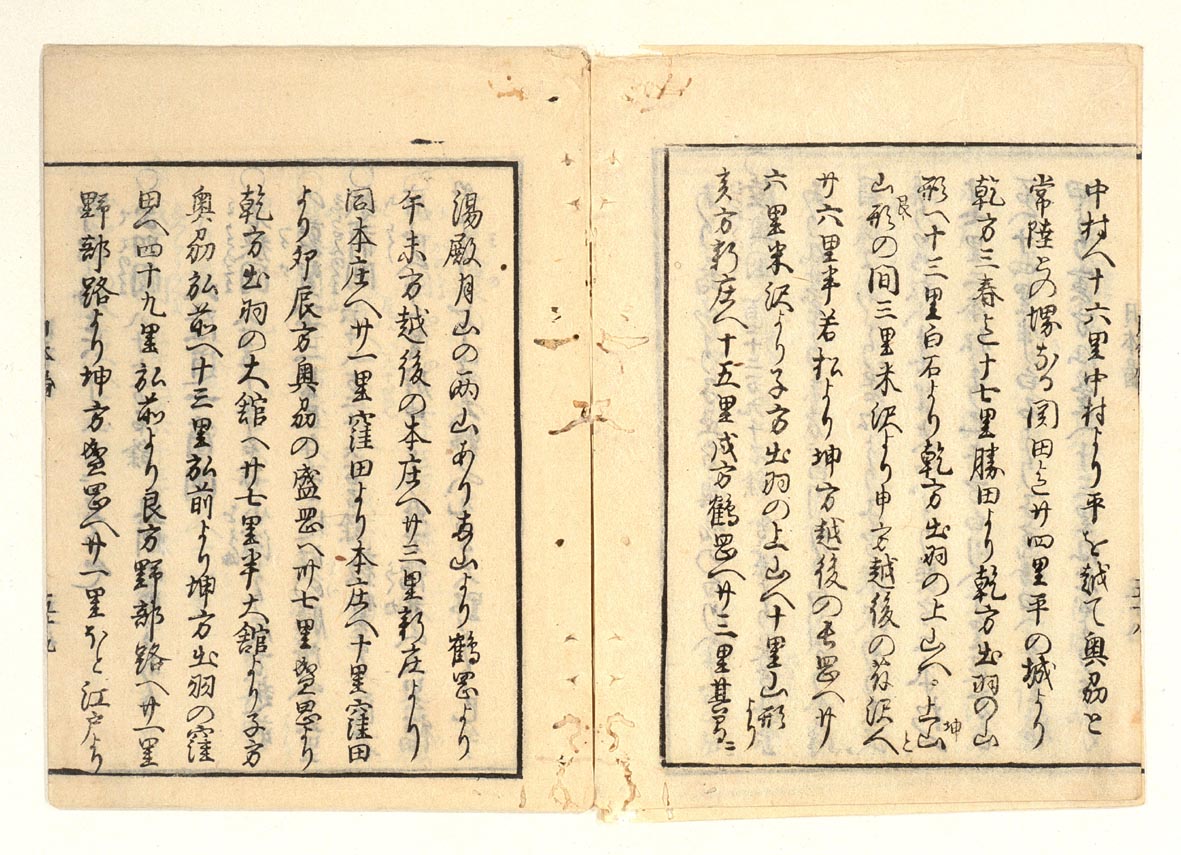 中村へ十六里中村より平を越て奥刕と
常陸との堺なる関田迄廿四里平の城より
乾方三春迄十七里勝田より乾方出羽の山
形へ十三里白石より乾方出羽の上山へ 上山と
坤
山形の間三里米沢より申方越後の 沢へ
艮
廿六里半若松より坤方越後の長岡へ廿
六里米沢より子方出羽の上山へ十里山形より
亥方新庄へ十五里戌方鶴岡へ廿三里其間ニ
湯殿月山の両山あり 山より鶴岡より
午未方越後の本庄へ廿三里新庄より
同本庄へ廿一里窪田より本庄へ十里窪田
より卯辰方奥刕の盛岡へ卅七里盛岡より
乾方出羽の大舘へ廿七里半大舘より子方
奥刕弘前へ十三里弘前より坤方出羽の窪
田へ四十九里弘前より艮方野部路へ廿一里
野部路より坤方盛岡へ廿一里ほと江戸より